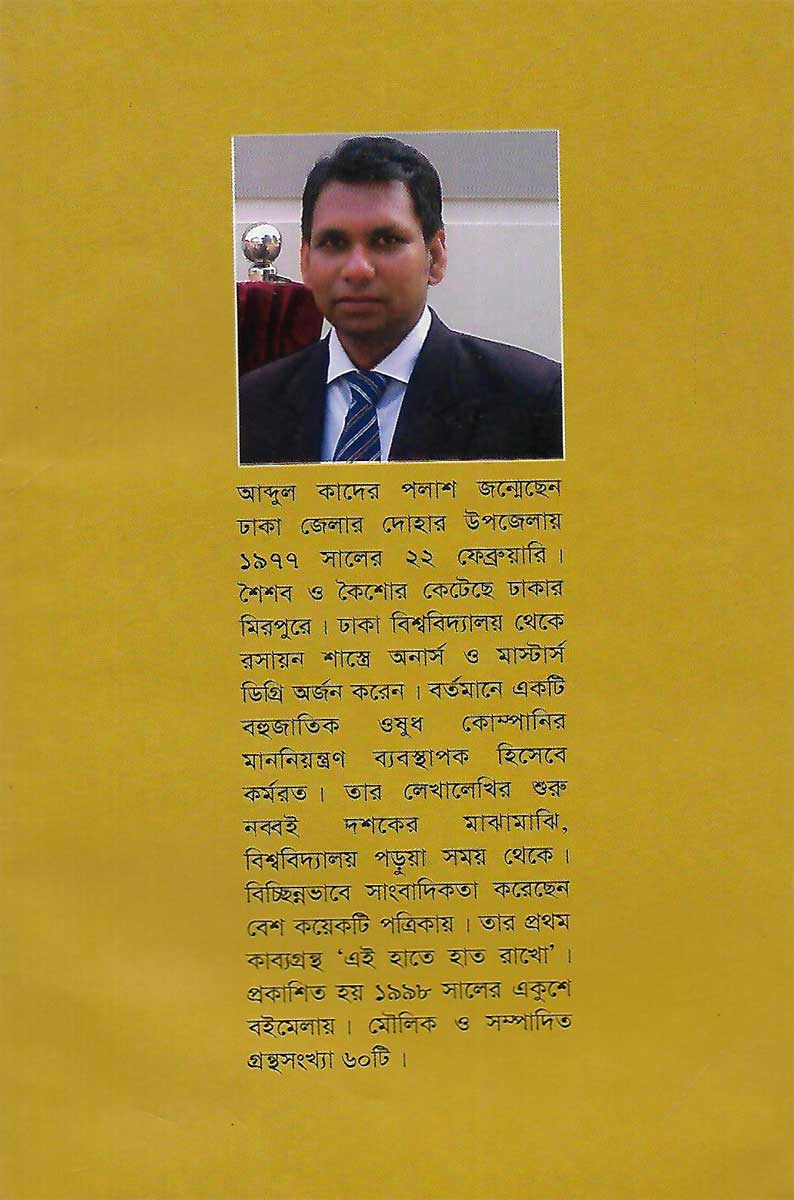 আব্দুল কাদের পলাশ জন্মেছেন
ঢাকা জেলার দোহার উপজেলায়
১৯৭৭ সালের ২২ ফেব্রুয়ারি।
শৈশব ও কৈশোর কেটেছে ঢাকার
মিরপুরে। ঢাকা বিশ্ববিদ্যালয় থেকে
রসায়ন শাস্ত্রে অনার্স ও মাস্টার্স
ডিগ্রি অর্জন করেন। বর্তমানে একটি
বহুজাতিক ওষুধ কোম্পানির
মাননিয়ন্ত্রণ ব্যবস্থাপক হিসেবে
কর্মরত। তার লেখালেখির শুরু
নব্বই দশকের মাঝামাঝি,
বিশ্ববিদ্যালয় পড়ুয়া সময় থেকে।
বিচ্ছিন্নভাবে সাংবাদিকতা করেছেন
বেশ কয়েকটি পত্রিকায়। তার প্রথম
কাব্যগ্রন্থ ‘এই হাতে হাত রাখো’।
প্রকাশিত হয় ১৯৯৮ সালের একুশে
বইমেলায়। মৌলিক ও সম্পাদিত
গ্রন্থসংখ্যা ৬০টি।